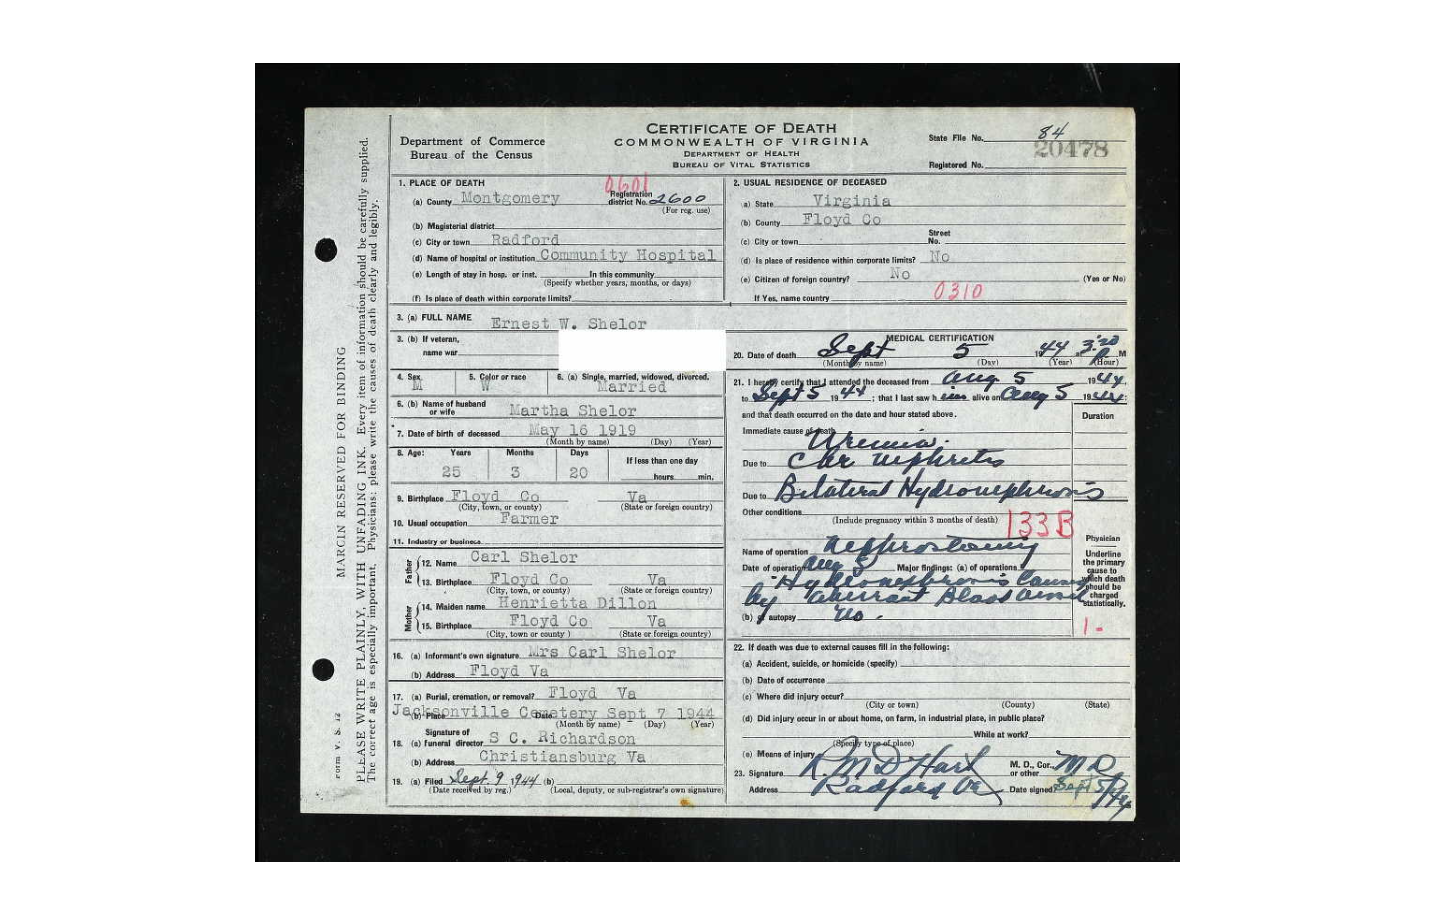 CERTIFICATE OF DEATH
COMMONWEALTH OF VIRGINIA
DEPARTMENT OF HEALTH
BUREAU OF VITAL STATISTICS
Department of Commerce
Bureau of the Census
State File No. 84
20478
Registered No.
MARGIN RESERVED FOR BINDING
PLEASE WRITE PLAINLY, WITH UNFADING INK. Every item of information should be carefully supplied.
The correct age is especially important. Physicians: please write the causes of death clearly and legibly.
Form V. S. 12
1. PLACE OF DEATH
0601
(a) County Montgomery Registration district No. 2600
(For reg. use)
(b) Magisterial district
(c) City or town Radford
(d) Name of hospital or institution Community Hospital
(e) Length of stay in hosp. or inst. In this community
(Specify whether years, months, or days)
(f) Is place of death within corporate limits?
2. USUAL RESIDENCE OF DECEASED
(a) State Virginia
(b) County Floyd Co
(c) City or town Street No.
(d) Is place of residence within corporate limits? No
(e) Citizen of foreign country? No (Yes or No)
If Yes, name country 0310
3. (a) FULL NAME Ernest W. Shelor
3. (b) If veteran,
name war
4. Sex M
5. Color or race W
6. (a) Single, married, widowed, divorced. Married
6. (b) Name of husband or wife Martha Shelor
7. Date of birth of deceased May 16 1919
(Month by name) (Day) (Year)
8. Age: Years Months Days If less than one day
25 3 20 hours min.
9. Birthplace Floyd Co Va
(City, town, or county) (State or foreign country)
10. Usual occupation Farmer
11. Industry or business
Father
12. Name Carl Shelor
13. Birthplace Floyd Co Va
(City, town, or county) (State or foreign country)
Mother
14. Maiden name Henrietta Dillon
15. Birthplace Floyd Co Va
(City, town or county ) (State or foreign country)
16. (a) Informant's own signature Mrs Carl Shelor
(b) Address Floyd Va
17. (a) Burial, cremation, or removal? Floyd Va
(b) Place Jacksonville Cemetery Date Sept 7 1944
(Month by name) (Day) (Year)
Signature of
18. (a) funeral director S C. Richardson
(b) Address Christiansburg Va
19. (a) Filed Sept. 9, 1944 (b)
(Date received by reg.) (Local, deputy, or sub-registrar's own signature)
MEDICAL CERTIFICATION
20. Date of death Sept 5 1944 3:20 P M
(Month by name) (Day) (Year) (Hour)
21. I hereby certify that I attended the deceased from Aug 5 1944
to Sept 5 1944; that I last saw him alive on Aug 5 1944;
and that death occurred on the date and hour stated above.
Duration
Immediate cause of death Uremia.
Due to Chr nephritis
Due to Bilateral Hydronephrosis
Other conditions
(Include pregnancy within 3 months of death)
133B
Name of operation Nephrostomy
Date of operation Aug 5 Major findings: (a) of operations
Hydronephrosis Caused
by aberrant Blood vessel
(b) of autopsy No.
Physician
Underline the primary cause to which death should be charged statistically.
1-
22. If death was due to external causes fill in the following:
(a) Accident, suicide, or homicide (specify)
(b) Date of occurrence
(c) Where did injury occur?
(City or town) (County) (State)
(d) Did injury occur in or about home, on farm, in industrial place, in public place?
While at work?
(Specify type of place)
(e) Means of injury
23. Signature M D Hart M. D., Cor. or other M D
Address Radford Va Date signed Sept 5/44